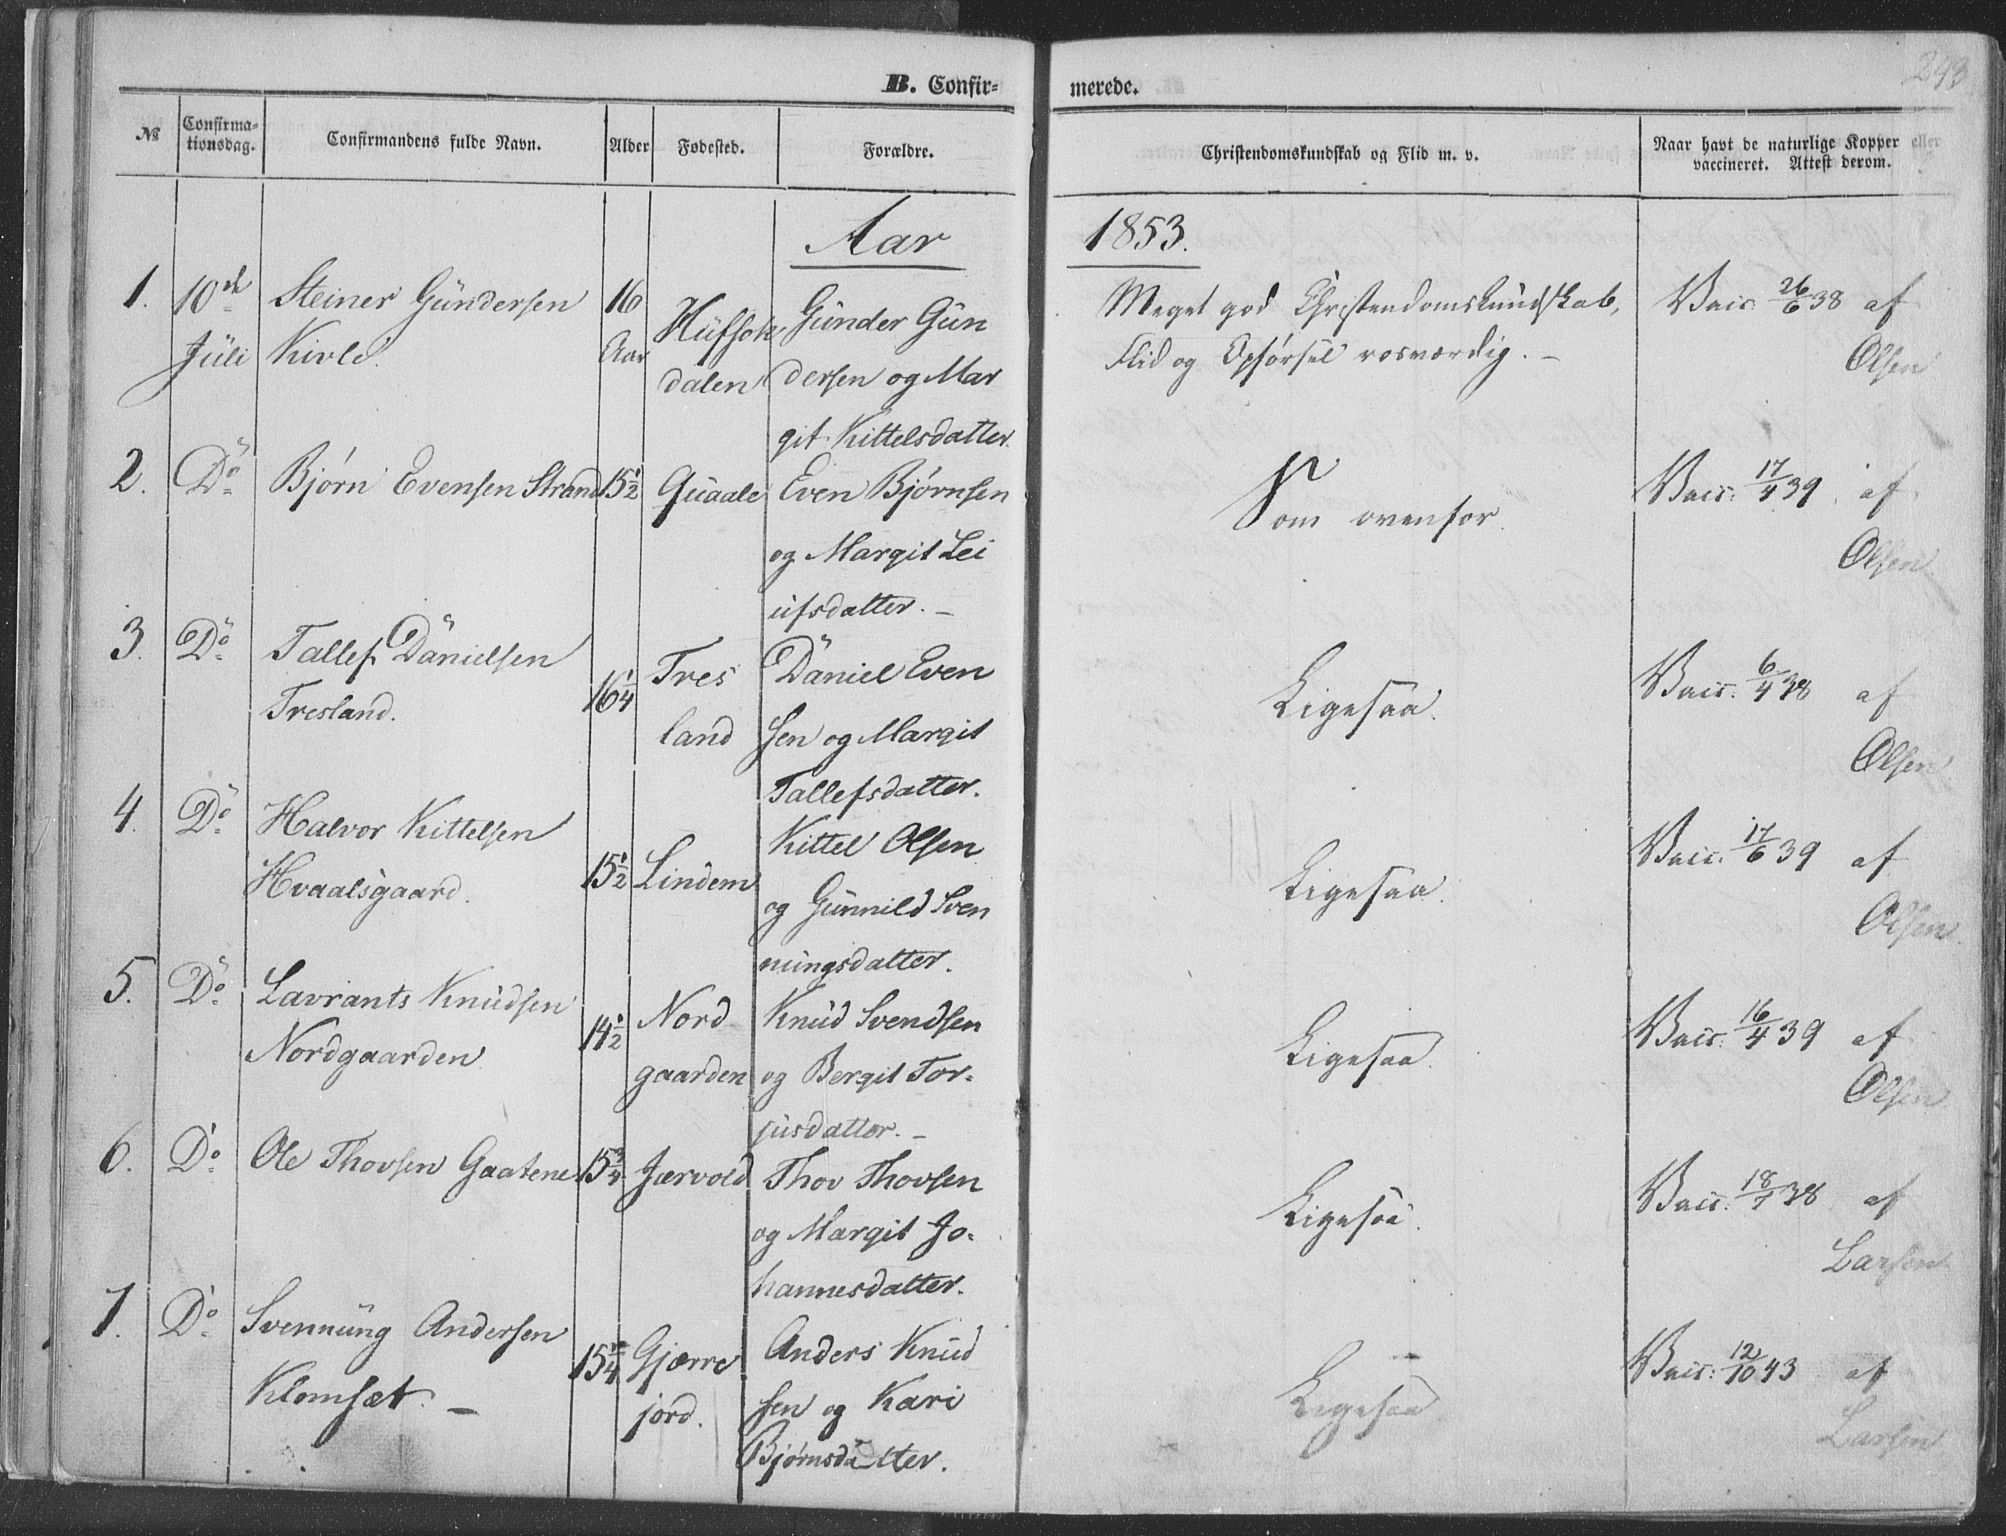 B. Confir-
merede.
243
№
Confirma-
tionsdag.
Confirmandens fulde Navn.
Alder
Fødested.
Forældre.
Christendomskundskab og Flid m. v.
Naar havt de naturlige Kopper eller
vaccineret. Attest derom.
Aar
1853.
1. 10de Steiner Gundersen 16 Gunder Gun
Juli Kivle. Aar
dalen dersen og Mar
git Kittelsdatter.
Meget god Christendomskundskab,
Flid og Opførsel rosværdig. –
Vacc. 26/6 38 af
Olsen
2. Do Bjørn Evensen Strand 15 1/2 Quaale Even Bjørnsen
og Margit Lei
ufsdatter. –
Som ovenfor.
Vacc. 17/4 39 af
Olsen
3. Do Tallef Danielsen
Tresland. 16 1/4 Tres
land Daniel Even
sen og Margit
Tallefsdatter.
Ligesaa.
Vacc. 6/4 38 af
Olsen
4. Do Halvor Kittelsen
Hvaalsgaard. 15 1/2 Lindem Kittel Olsen
og Gunnild Sven
nungsdatter.
Ligesaa.
Vacc. 17/6 39 af
Olsen
5. Do Lavrants Knudsen
Nordgaarden 14 1/2 Nord
gaarden Knud Svendsen
og Bergit Tor-
jusdatter. –
Ligesaa.
Vacc. 16/4 39 af
Olsen
6. Do Ole Thovsen Gaatene 15 3/4 Jærvold Thov Thovsen
og Margit Jo-
hannesdatter.
Ligesaa.
Vacc. 18/7 38 af
Larsen
7. Do Svennung Andersen
Klomset. – Gjerre
jord. Anders Knud
sen og Kari
Bjørnsdatter.
Ligesaa
Vacc. 12/10 43 af
Larsen